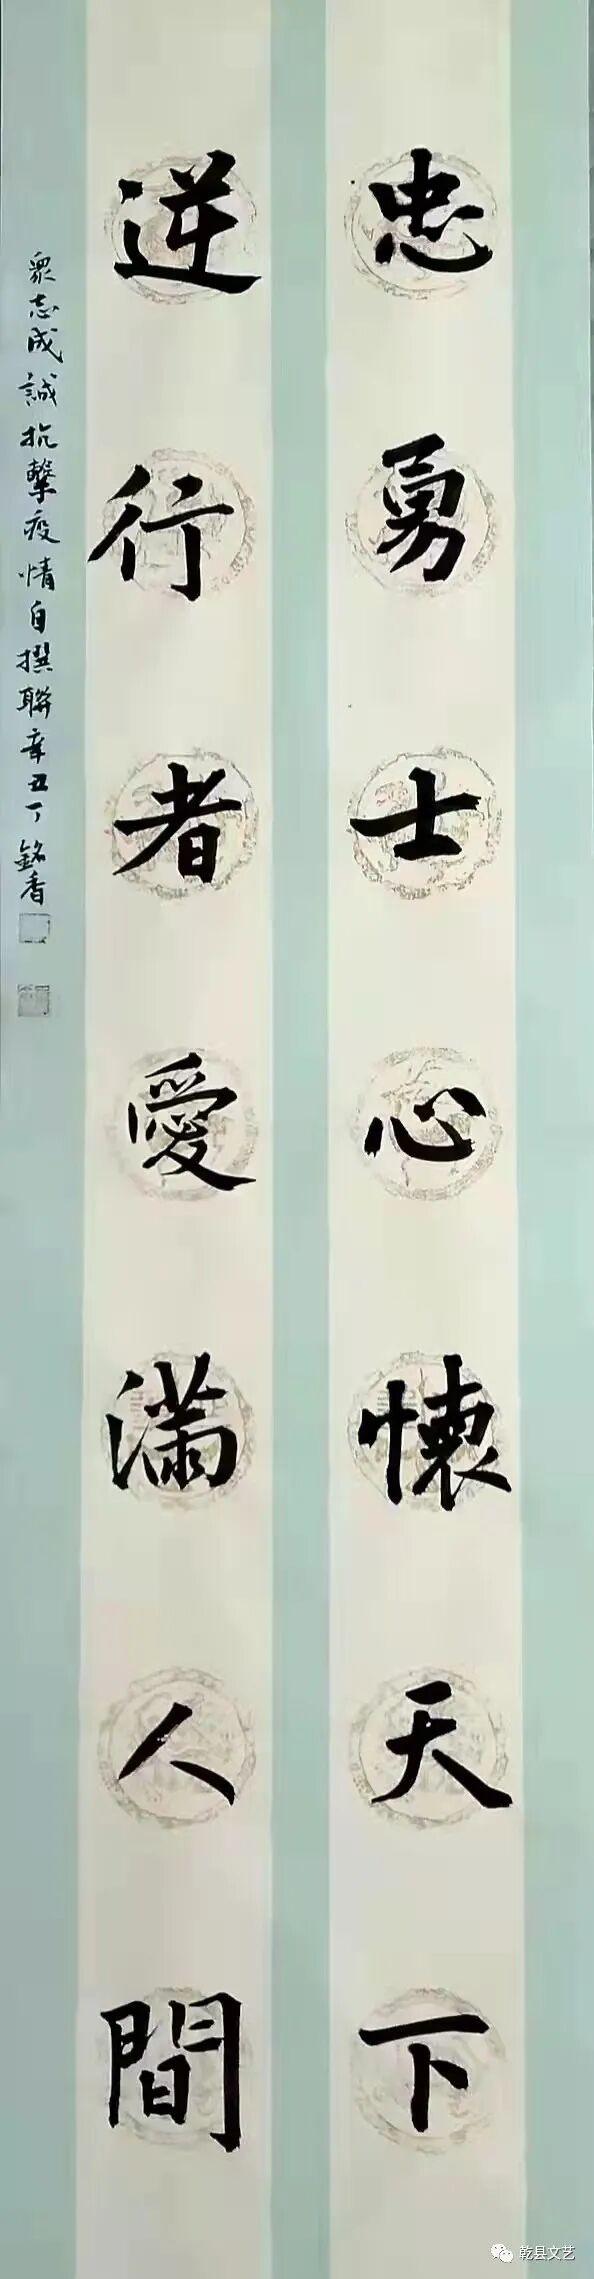 忠勇士心懷天下
逆行者愛滿人間
衆志成誠抗擊疫情自撰聯辛丑丁銘香
乾县文艺